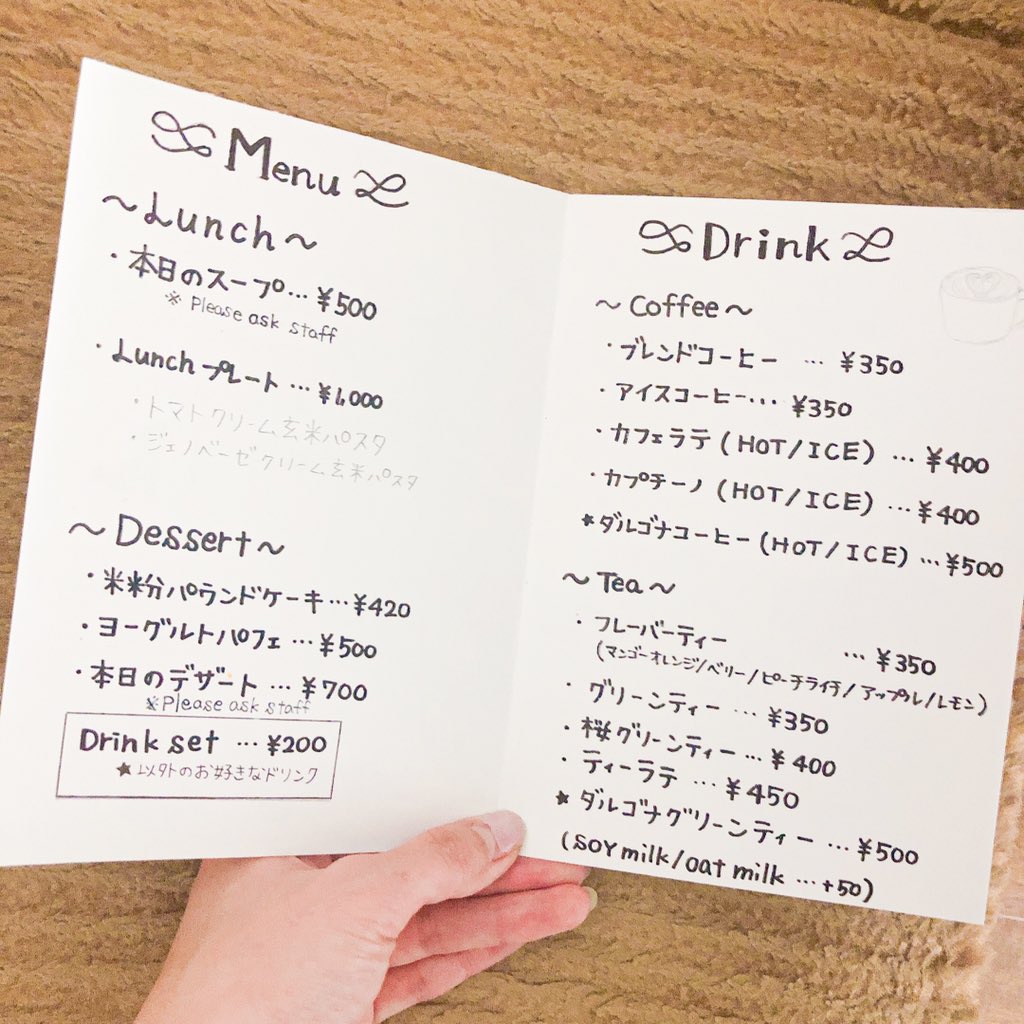 Menu
~Lunch~
・本日のスープ…¥500
※ Please ask staff
・Lunchプレート…¥1,000
・トマトクリーム玄米パスタ
・ジェノベーゼクリーム玄米パスタ
~Dessert~
・米粉パウンドケーキ…¥420
・ヨーグルトパフェ…¥500
・本日のデザート…¥700
※Please ask staff
Drink set …¥200
★以外のお好きなドリンク
Drink
~Coffee~
・ブレンドコーヒー …¥350
・アイスコーヒー…¥350
・カフェラテ(HOT/ICE)…¥400
・カプチーノ(HOT/ICE)…¥400
★ダルゴナコーヒー(HOT/ICE)…¥500
~Tea~
・フレーバーティー …¥350
(マンゴーオレンジ/ベリー/ピーチライチ/アップル/レモン)
・グリーンティー…¥350
・桜グリーンティー…¥400
・ティーラテ…¥450
★ダルゴナグリーンティー…¥500
(soy milk/oat milk…+50)